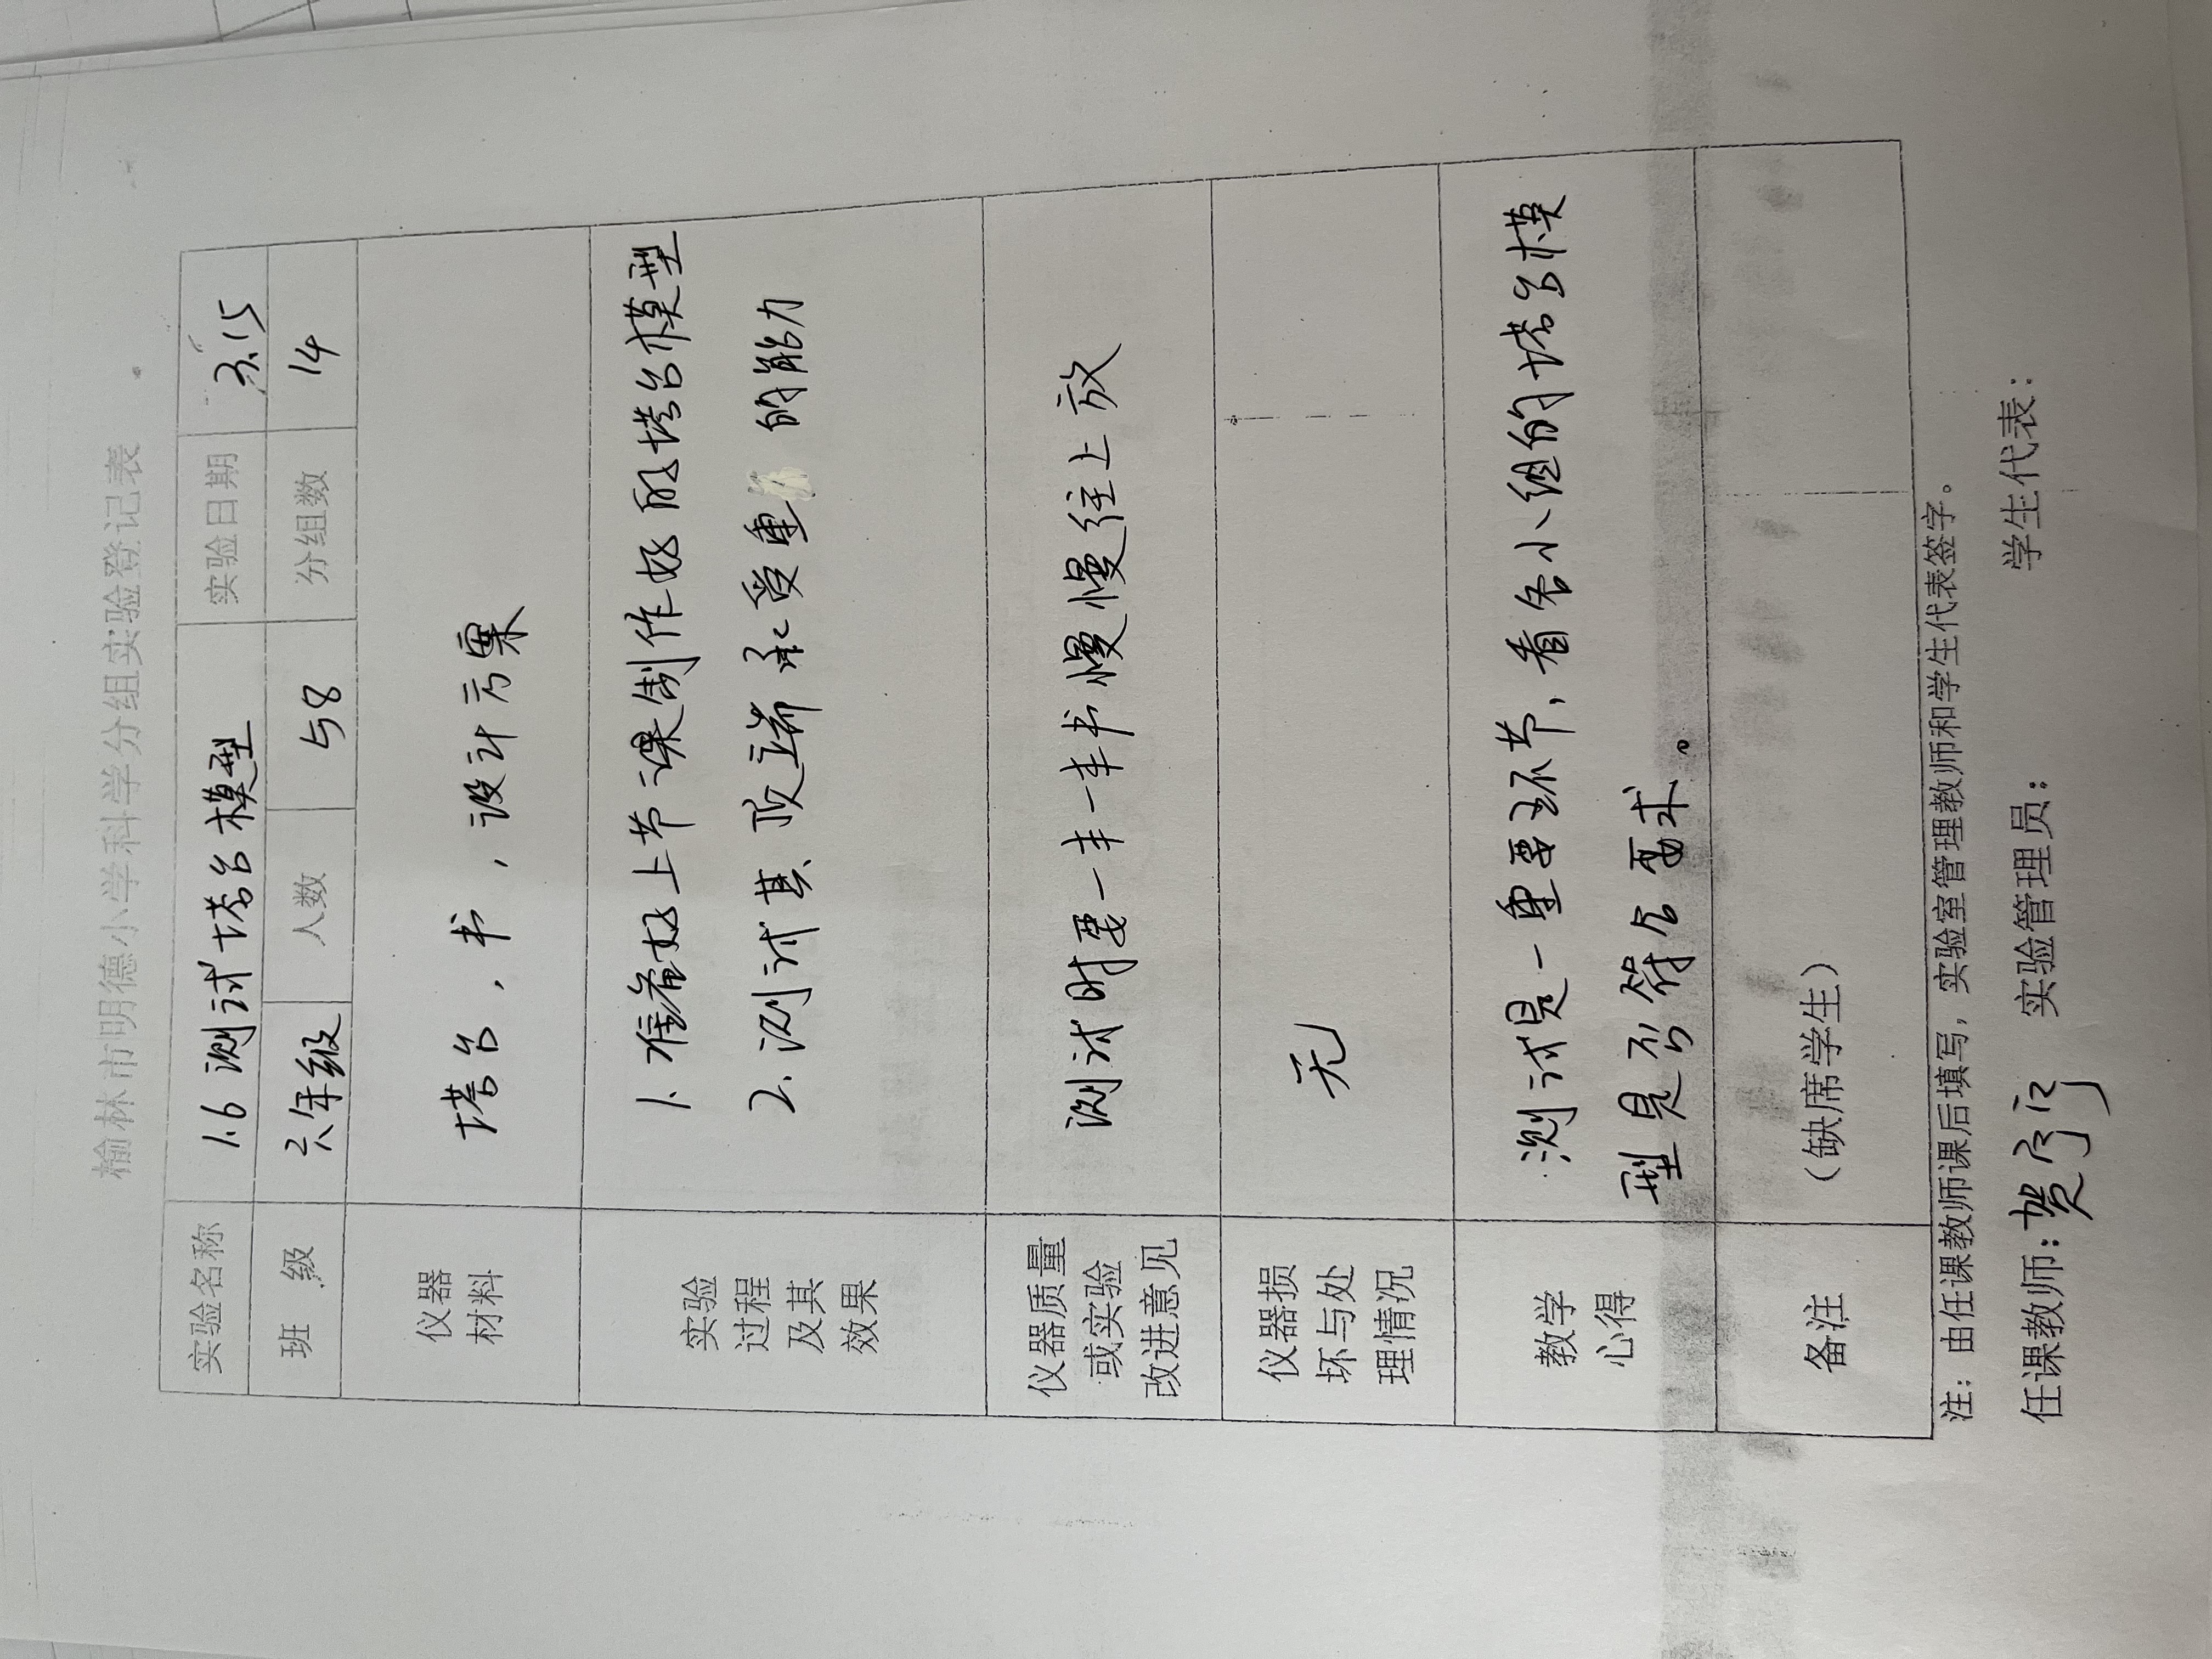 榆林市明德小学科学分组实验登记表
实验名称 1.6 测试塔台模型 实验日期 3.15
班 级 六年级 人数 58 分组数 14
仪器
材料
塔台，书，设计方案
实验
过程
及其
效果
1. 准备好上节课制作好的塔台模型
2. 测试其顶端承受重 的能力
仪器质量
或实验
改进意见
测试时要一本一本书慢慢往上放
仪器损
坏与处
理情况
无
教学
心得
测试是一重要环节，看各小组的塔台模
型是否符合要求。
备注
（缺席学生）
注：由任课教师课后填写，实验室管理教师和学生代表签字。
任课教师：贺 实验管理员： 学生代表：